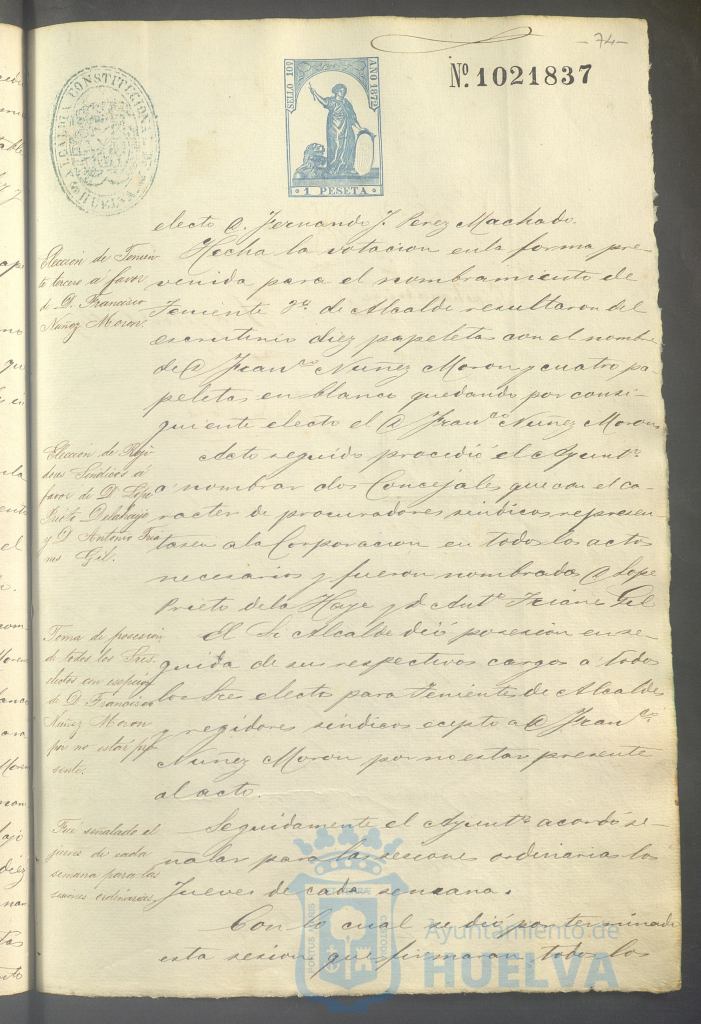 -74-
ALCALDIA CONSTITUCIONAL DE
HUELVA
SELLO 10º
AÑO 1872
1 PESETA
Nº. 1021837
electo D. Fernando J. Perez Machado.
Eleccion de Tenien-
te tercero á favor
de D. Francisco
Nuñez Moron.
Hecha la votacion en la forma pre-
venida para el nombramiento de
Teniente 3º. de Alcalde resultaron del
escrutinio diez papeletas con el nombre
de D. Franco. Nuñez Moron y cuatro pa-
peletas en blanco quedando por consi-
guiente electo el D. Franco. Nuñez Moron
Eleccion de Regi-
dores Sindicos á
favor de D. Lope
Prieto Delahaye
y D. Antonio Tria-
nes Gil.
Acto seguido procedió el Ayuntº.
á nombrar dos Concejales que con el ca-
racter de procuradores sindicos represen-
tasen a la Corporacion en todos los actos
necesarios y fueron nombrados D. Lope
Prieto de la Haye y D. Antº. Trianes Gil
Toma de posesion
de todos los Sres.
electos con esepcion
de D. Francisco
Nuñez Moron
por no estar pre-
sente.
El Sr Alcalde dió posesion ense-
guida de sus respectivos cargos á todos
los Sres electos para Tenientes de Alcaldes
y regidores sindicos ecepto a D. Franco.
Nuñez Moron por no estar presente
al acto.
Fué señalado el
jueves de cada
semana para las
sesiones ordinarias.
Seguidamente el Ayuntº. acordó se-
ñalar para las sesiones ordinarias los
Jueves de cada semana.
Con lo cual se dió por terminada
esta sesion que firmaron todos los
Ayuntamiento de
HUELVA